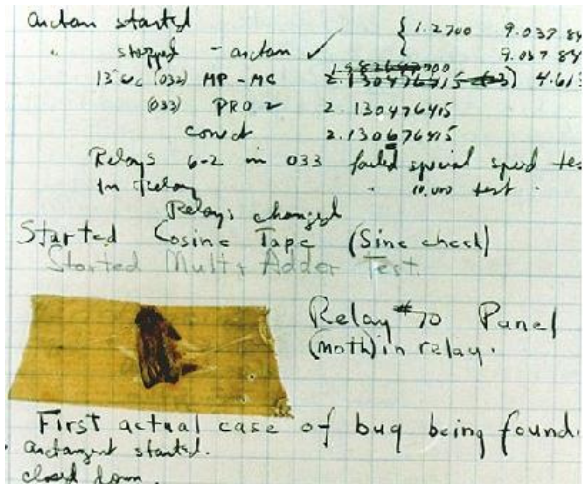 arctan started { 1.2700 9.037 84
" stopped - arctan ✓ 9.037 84
13" uc (032) MP - MC 2.130476415 4.615
(033) PRO 2 2.130476415
correct 2.130676415
Relays 6-2 in 033 failed special speed tes
In Relay " 10.000 test.
Relays changed
Started Cosine Tape (Sine check)
Started Mult + Adder Test.
Relay #70 Panel
(moth) in relay.
First actual case of bug being found.
arctangent started.
closed down.